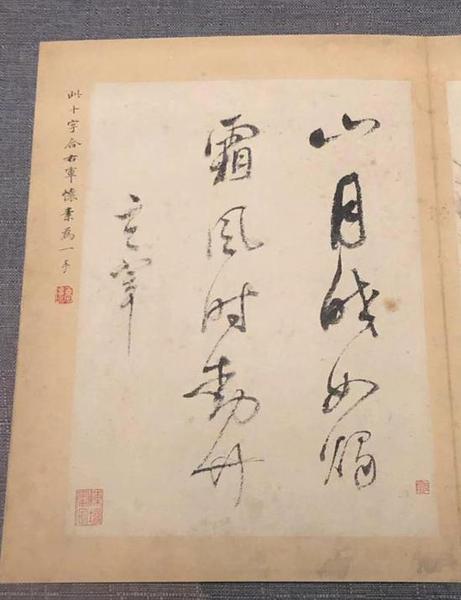 山月皎如燭
霜風時動竹
玄宰
此十字合右軍懷素為一手